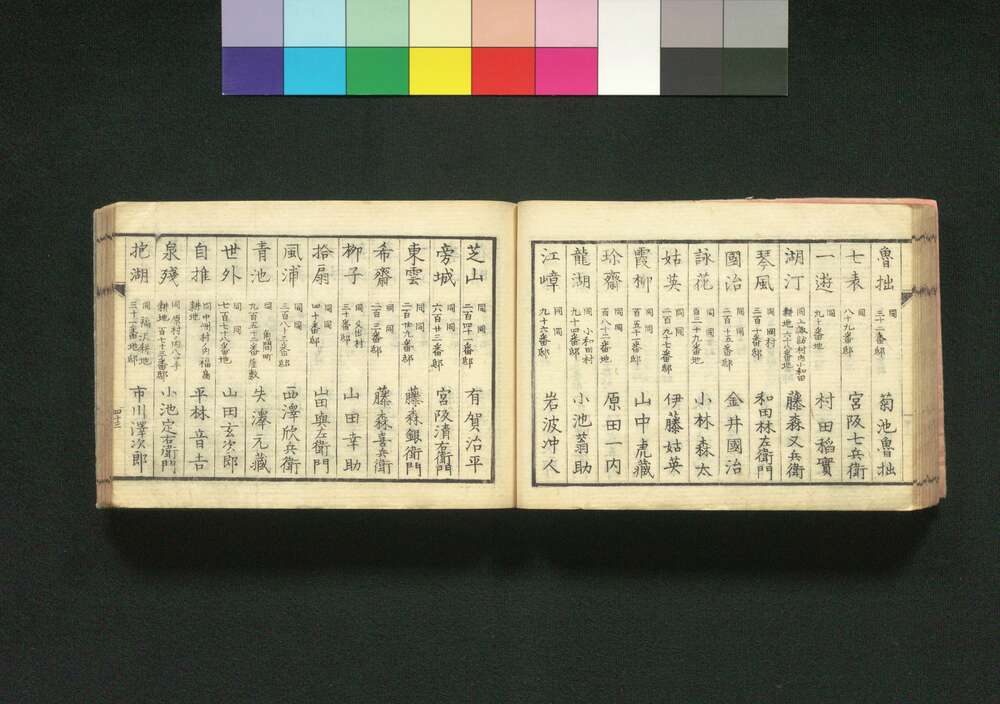 魯拙 同 三十二番邸 菊池魯拙
七表 同 八十九番邸 宮阪七兵衛
一遊 同 九十番地 村田稻實
湖汀 同 上諏訪村内小和田耕地六十八番地 藤森又兵衛
琴風 同 同村 三百十番邸 和田林左衛門
國治 同 同 二百十五番邸 金井國治
詠花 同 同 百三十九番地 小林森太
姑英 同 同 二百九十七番邸 伊藤姑英
霞柳 同 同 百五十二番邸 山中虎藏
珍齋 同 同 八十二番地 原田一内
龍湖 同 小和田村 九十四番邸 小池蓊助
江嶂 同 同 九十六番邸 岩波冲人
芝山 同 同 二百四十一番邸 有賀治平
旁城 同 同 六百廿三番邸 宮阪清右衛門
東雲 同 同 二百廿九番邸 藤森銀衛門
希齋 同 同 二百三番邸 藤森喜兵衛
柳子 同 文出村 三十番邸 山田幸助
拾扇 同 同 四十番邸 山田與左衛門
風浦 同 同 三百八十三番邸 西澤欣兵衛
青池 同 角間町 九百五十三番屋敷 矢澤元藏
世外 同 同 七百七十八番地 山田玄次郎
自推 同 中洲村ノ内福島耕地 平林音吉
泉殘 同 原村ノ内八ツ手耕地 百七十三番邸 小池定右衛門
挹湖 同 福沢耕地 三十一番地邸 市川澤次郎
四十三